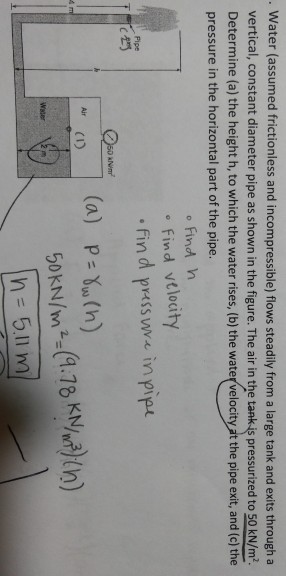 . Water (assumed frictionless and incompressible) flows steadily from a large tank and exits through a
vertical, constant diameter pipe as shown in the figure. The air in the tank is pressurized to 50 kN/m².
Determine (a) the height h, to which the water rises, (b) the water velocity at the pipe exit, and (c) the
pressure in the horizontal part of the pipe.
• Find h
• Find velocity
• Find pressure in pipe
Pipe
(2)
4 m
h
50 kN/m²
Air
(1)
Water
(a) P = γw(h)
50 KN/m² = (9.78 KN/m³)(h)
h = 5.11 m